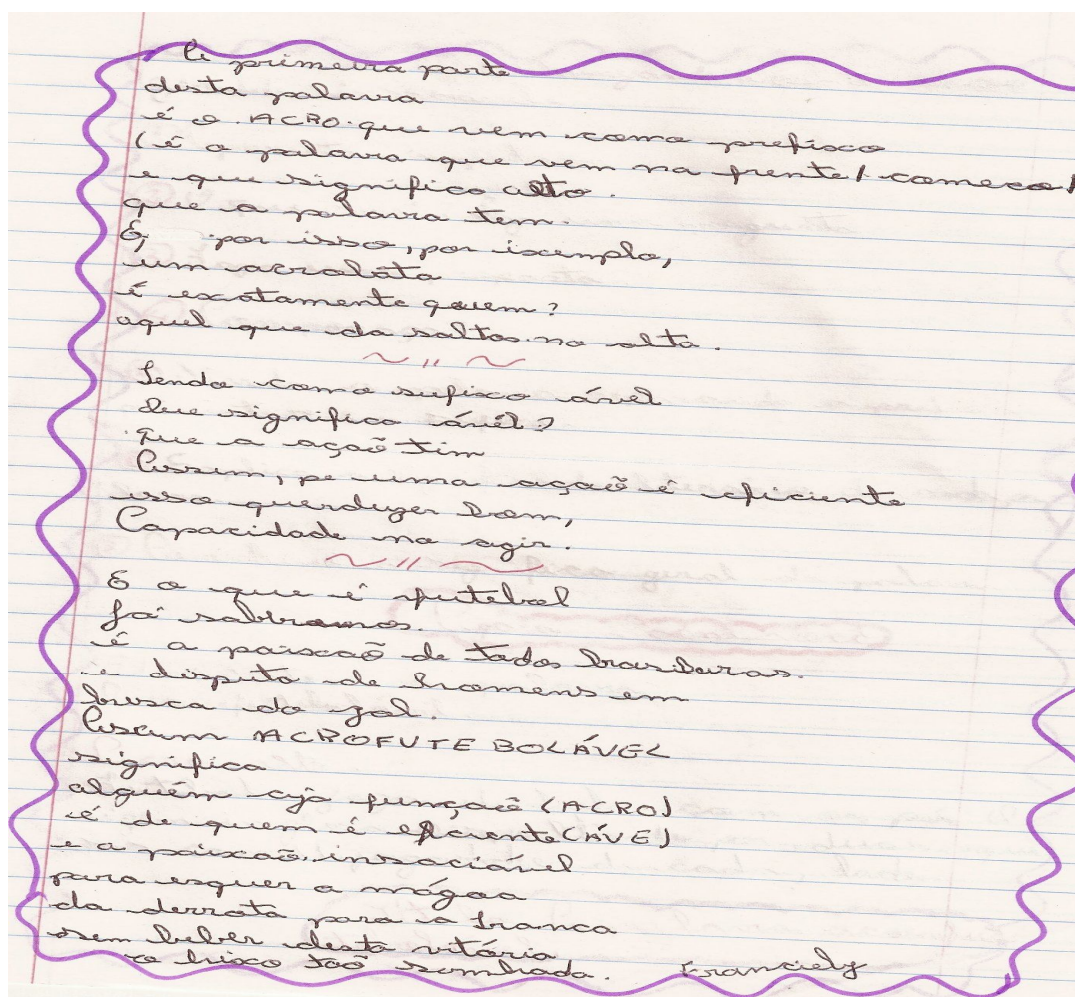 A primeira parte
desta palavra
é o ACRO que vem como prefixo
(é a palavra que vem na frente / começo)
e que significa alto.
que a palavra tem.
E, por isso, por isemplo,
um acrobata
é exatamente quem?
aquel que da saltos no alto.
Sendo como sufixo ável
Que significa ável?
que a açaõ tim
Assim, se uma açaõ é eficiente
isso querduzer bom,
Capacidade no agir.
E o que é futebol
já sabemos.
é a paixaõ de todos brasileiros.
disputa de homens em
busca do gol.
Assim ACROFUTEBOLÁVEL
significa
alguém cujo funçaõ (ACRO)
é de quem é eficiente (ÁVE)
e a paixaõ insaciável
para esquer a mágoa
da derrota para a frança
sem beber desta vitória
taõ sonhada. Franciely